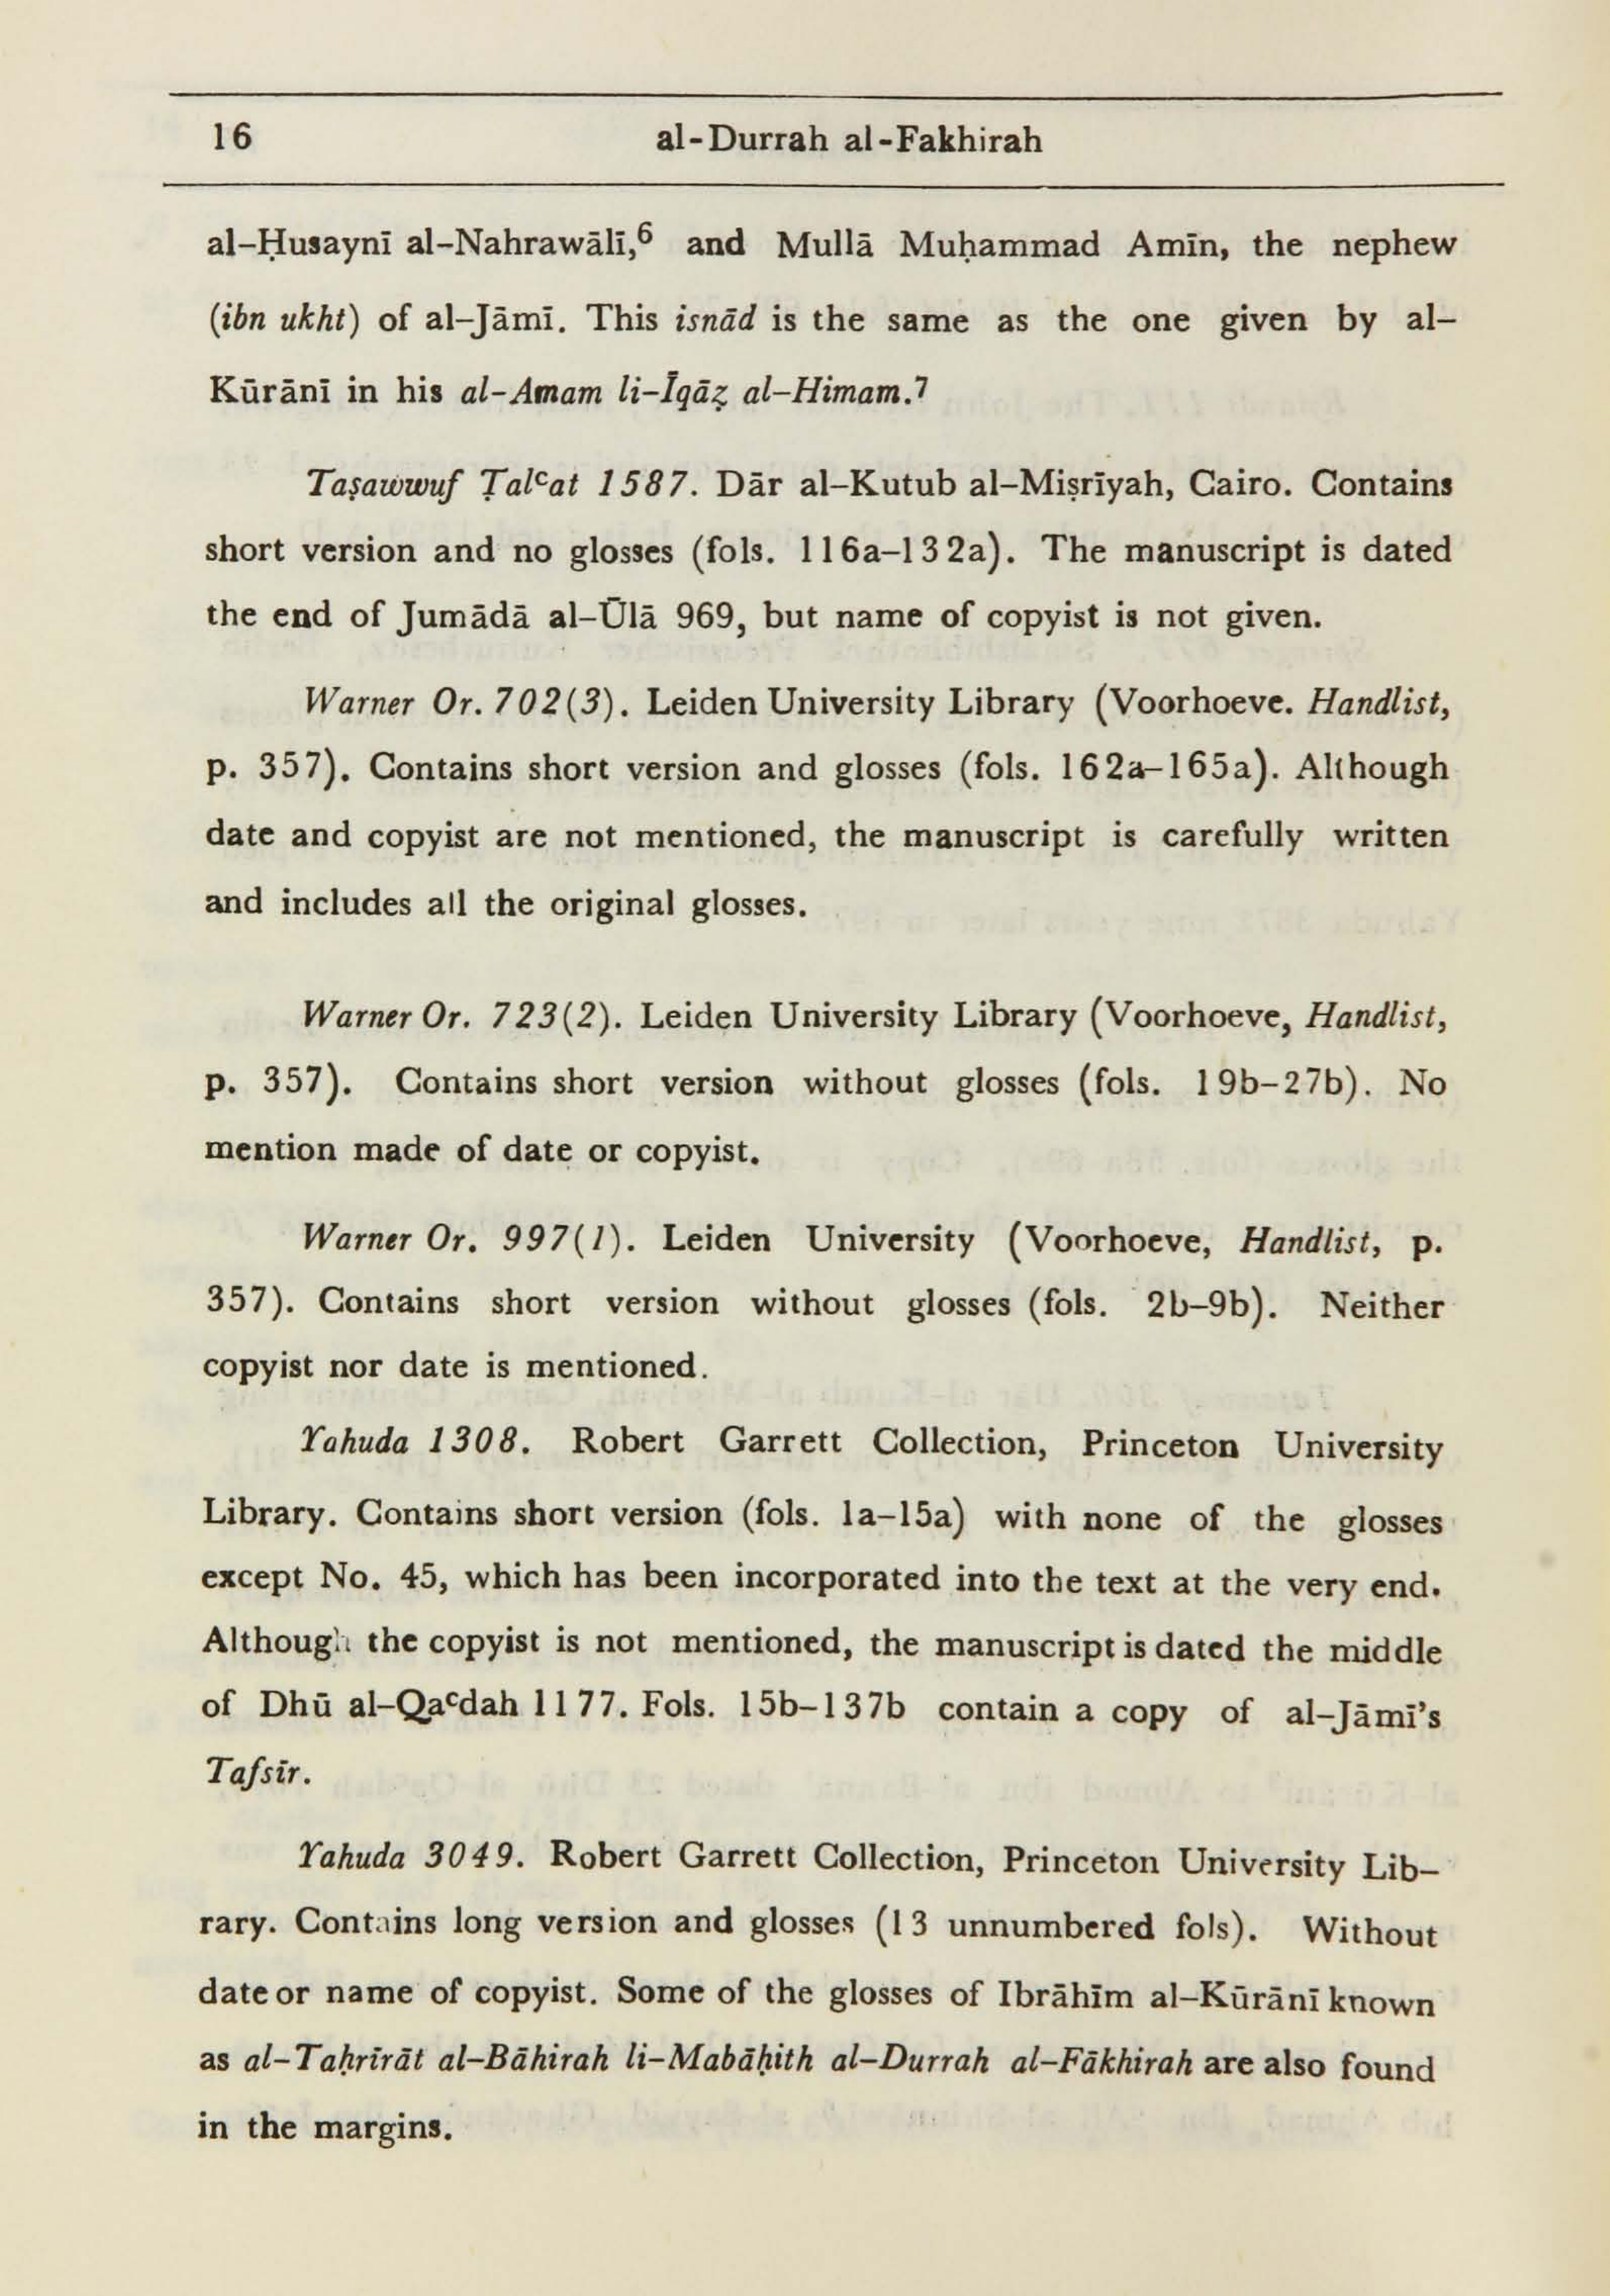 16
al-Durrah al-Fakhirah
al–Ḥusaynī al–Nahrawālī,⁶ and Mullā Muḥammad Amīn, the nephew
(ibn ukht) of al–Jāmī. This isnād is the same as the one given by al–
Kūrānī in his al-Amam li–Īqāẓ al–Himam.⁷
Taṣawwuf Ṭalᶜat 1587. Dār al–Kutub al–Miṣrīyah, Cairo. Contains
short version and no glosses (fols. 116a–132a). The manuscript is dated
the end of Jumādā al–Ūlā 969, but name of copyist is not given.
Warner Or. 702(3). Leiden University Library (Voorhoeve. Handlist,
p. 357). Contains short version and glosses (fols. 162a–165a). Although
date and copyist are not mentioned, the manuscript is carefully written
and includes all the original glosses.
Warner Or. 723(2). Leiden University Library (Voorhoeve, Handlist,
p. 357). Contains short version without glosses (fols. 19b–27b). No
mention made of date or copyist.
Warner Or. 997(1). Leiden University (Voorhoeve, Handlist, p.
357). Contains short version without glosses (fols. 2b–9b). Neither
copyist nor date is mentioned.
Yahuda 1308. Robert Garrett Collection, Princeton University
Library. Contains short version (fols. 1a–15a) with none of the glosses
except No. 45, which has been incorporated into the text at the very end.
Although the copyist is not mentioned, the manuscript is dated the middle
of Dhū al–Qaᶜdah 1177. Fols. 15b–137b contain a copy of al–Jāmī’s
Tafsīr.
Yahuda 3049. Robert Garrett Collection, Princeton University Lib–
rary. Contains long version and glosses (13 unnumbered fols). Without
date or name of copyist. Some of the glosses of Ibrāhīm al–Kūrānī known
as al–Taḥrīrāt al–Bāhirah li–Mabāḥith al–Durrah al–Fākhirah are also found
in the margins.